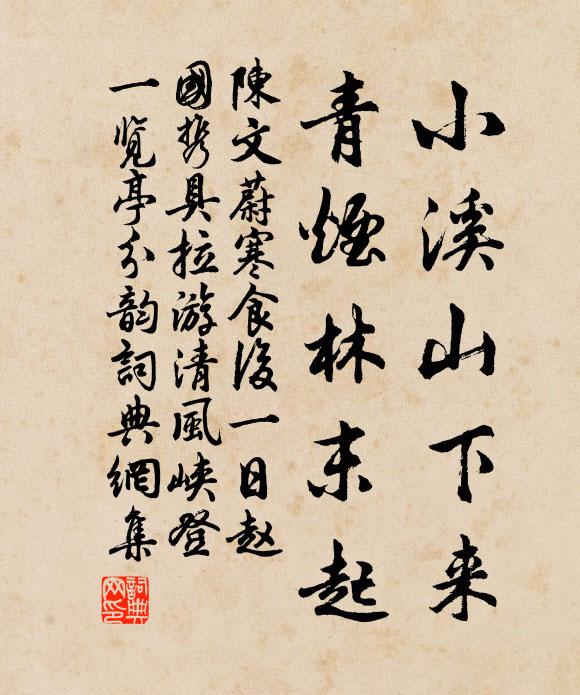 小溪山下来
青烟林末起
陳文蔚寒食後一日赵
國携具拉游清風峡登
一览亭分韵詞典網集
詞典網印